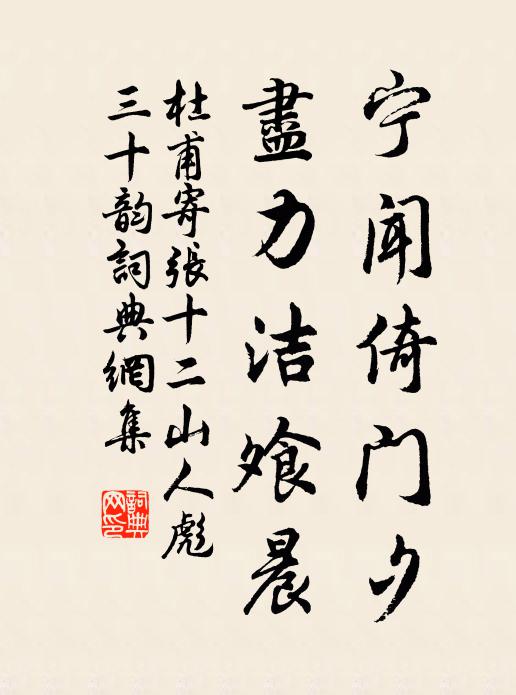 宁闻倚门夕
盡力洁飧晨
杜甫寄張十二山人彪
三十韵詞典網集
詞典网印